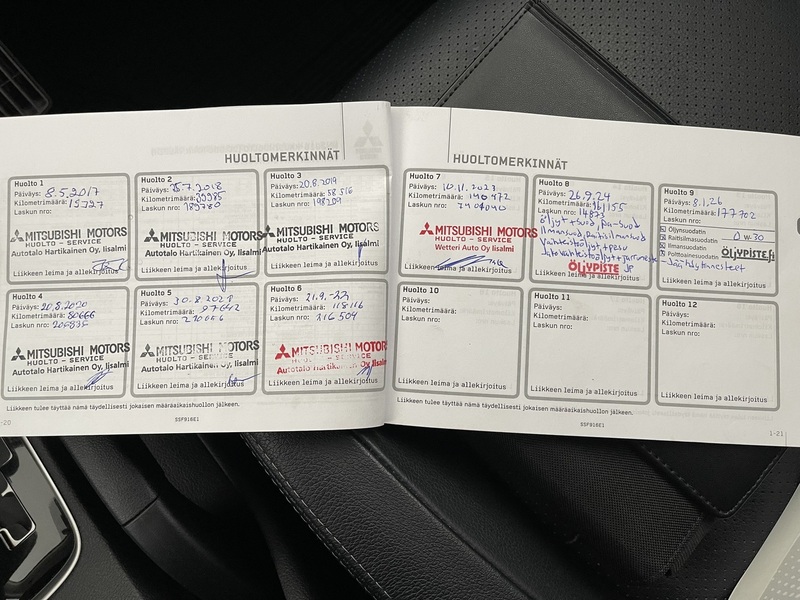 HUOLTOMERKINNÄT
Huolto 1
Päiväys: 8.5.2017
Kilometrimäärä: 15327
Laskun nro:
MITSUBISHI MOTORS
HUOLTO - SERVICE
Autotalo Hartikainen Oy, Iisalmi
Liikkeen leima ja allekirjoitus
Huolto 2
Päiväys: 7.2018
Kilometrimäärä: 39985
Laskun nro: 189780
MITSUBISHI MOTORS
HUOLTO - SERVICE
Autotalo Hartikainen Oy, Iisalmi
Liikkeen leima ja allekirjoitus
Huolto 3
Päiväys: 20.8.2019
Kilometrimäärä: 58516
Laskun nro: 198209
MITSUBISHI MOTORS
HUOLTO - SERVICE
Autotalo Hartikainen Oy, Iisalmi
Liikkeen leima ja allekirjoitus
Huolto 4
Päiväys: 20.8.2020
Kilometrimäärä: 80666
Laskun nro:
MITSUBISHI MOTORS
HUOLTO - SERVICE
Autotalo Hartikainen Oy, Iisalmi
Liikkeen leima ja allekirjoitus
Huolto 5
Päiväys: 30.8.2021
Kilometrimäärä: 97642
Laskun nro:
MITSUBISHI MOTORS
HUOLTO - SERVICE
Autotalo Hartikainen Oy, Iisalmi
Liikkeen leima ja allekirjoitus
Huolto 6
Päiväys: 21.9.-22
Kilometrimäärä: 118116
Laskun nro: 216504
MITSUBISHI MOTORS
HUOLTO - SERVICE
Autotalo Hartikainen Oy, Iisalmi
Liikkeen leima ja allekirjoitus
Liikkeen tulee täyttää nämä täydellisesti jokaisen määräaikaishuollon jälkeen.
-20
SSF916E1
HUOLTOMERKINNÄT
Huolto 7
Päiväys: 10.11.2023
Kilometrimäärä: 140472
Laskun nro:
MITSUBISHI MOTORS
HUOLTO - SERVICE
Wetteri Auto Oy, Iisalmi
Liikkeen leima ja allekirjoitus
Huolto 8
Päiväys: 26.9.24
Kilometrimäärä: 161155
Laskun nro: 14873
Öljyt+suod, pa-suod
ilmansuod, raitisilmansuod
Jakovaihteistoöljyt+jarruneste
-Jäähdytinnesteet
ÖLJYPISTE JP
Liikkeen leima ja allekirjoitus
Huolto 9
Päiväys: 8.1.26
Kilometrimäärä: 177702
Laskun nro:
Öljynsuodatin
Raitisilmasuodatin
Ilmansuodatin
Polttoainesuodatin
0w-30
ÖLJYPISTE.fi
Liikkeen leima ja allekirjoitus
Huolto 10
Päiväys:
Kilometrimäärä:
Laskun nro:
Liikkeen leima ja allekirjoitus
Huolto 11
Päiväys:
Kilometrimäärä:
Laskun nro:
Liikkeen leima ja allekirjoitus
Huolto 12
Päiväys:
Kilometrimäärä:
Laskun nro:
Liikkeen leima ja allekirjoitus
Liikkeen tulee täyttää nämä täydellisesti jokaisen määräaikaishuollon jälkeen.
SSF916E1
1-21